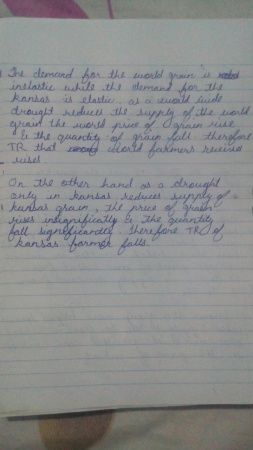 The demand for the world grain is
inelastic while the demand for the
kansas is elastic. as a world wide
drought reduces the supply of the world
grain the world price of grain rise
& the quantity of grain fall therefore
TR that world farmers receives
rises
On the other hand as a drought
only in kansas reduces supply of
kansas grain, the price of grain
rises insignificantly & the quantity
fall significantly. Therefore TR of
kansas farmer falls.